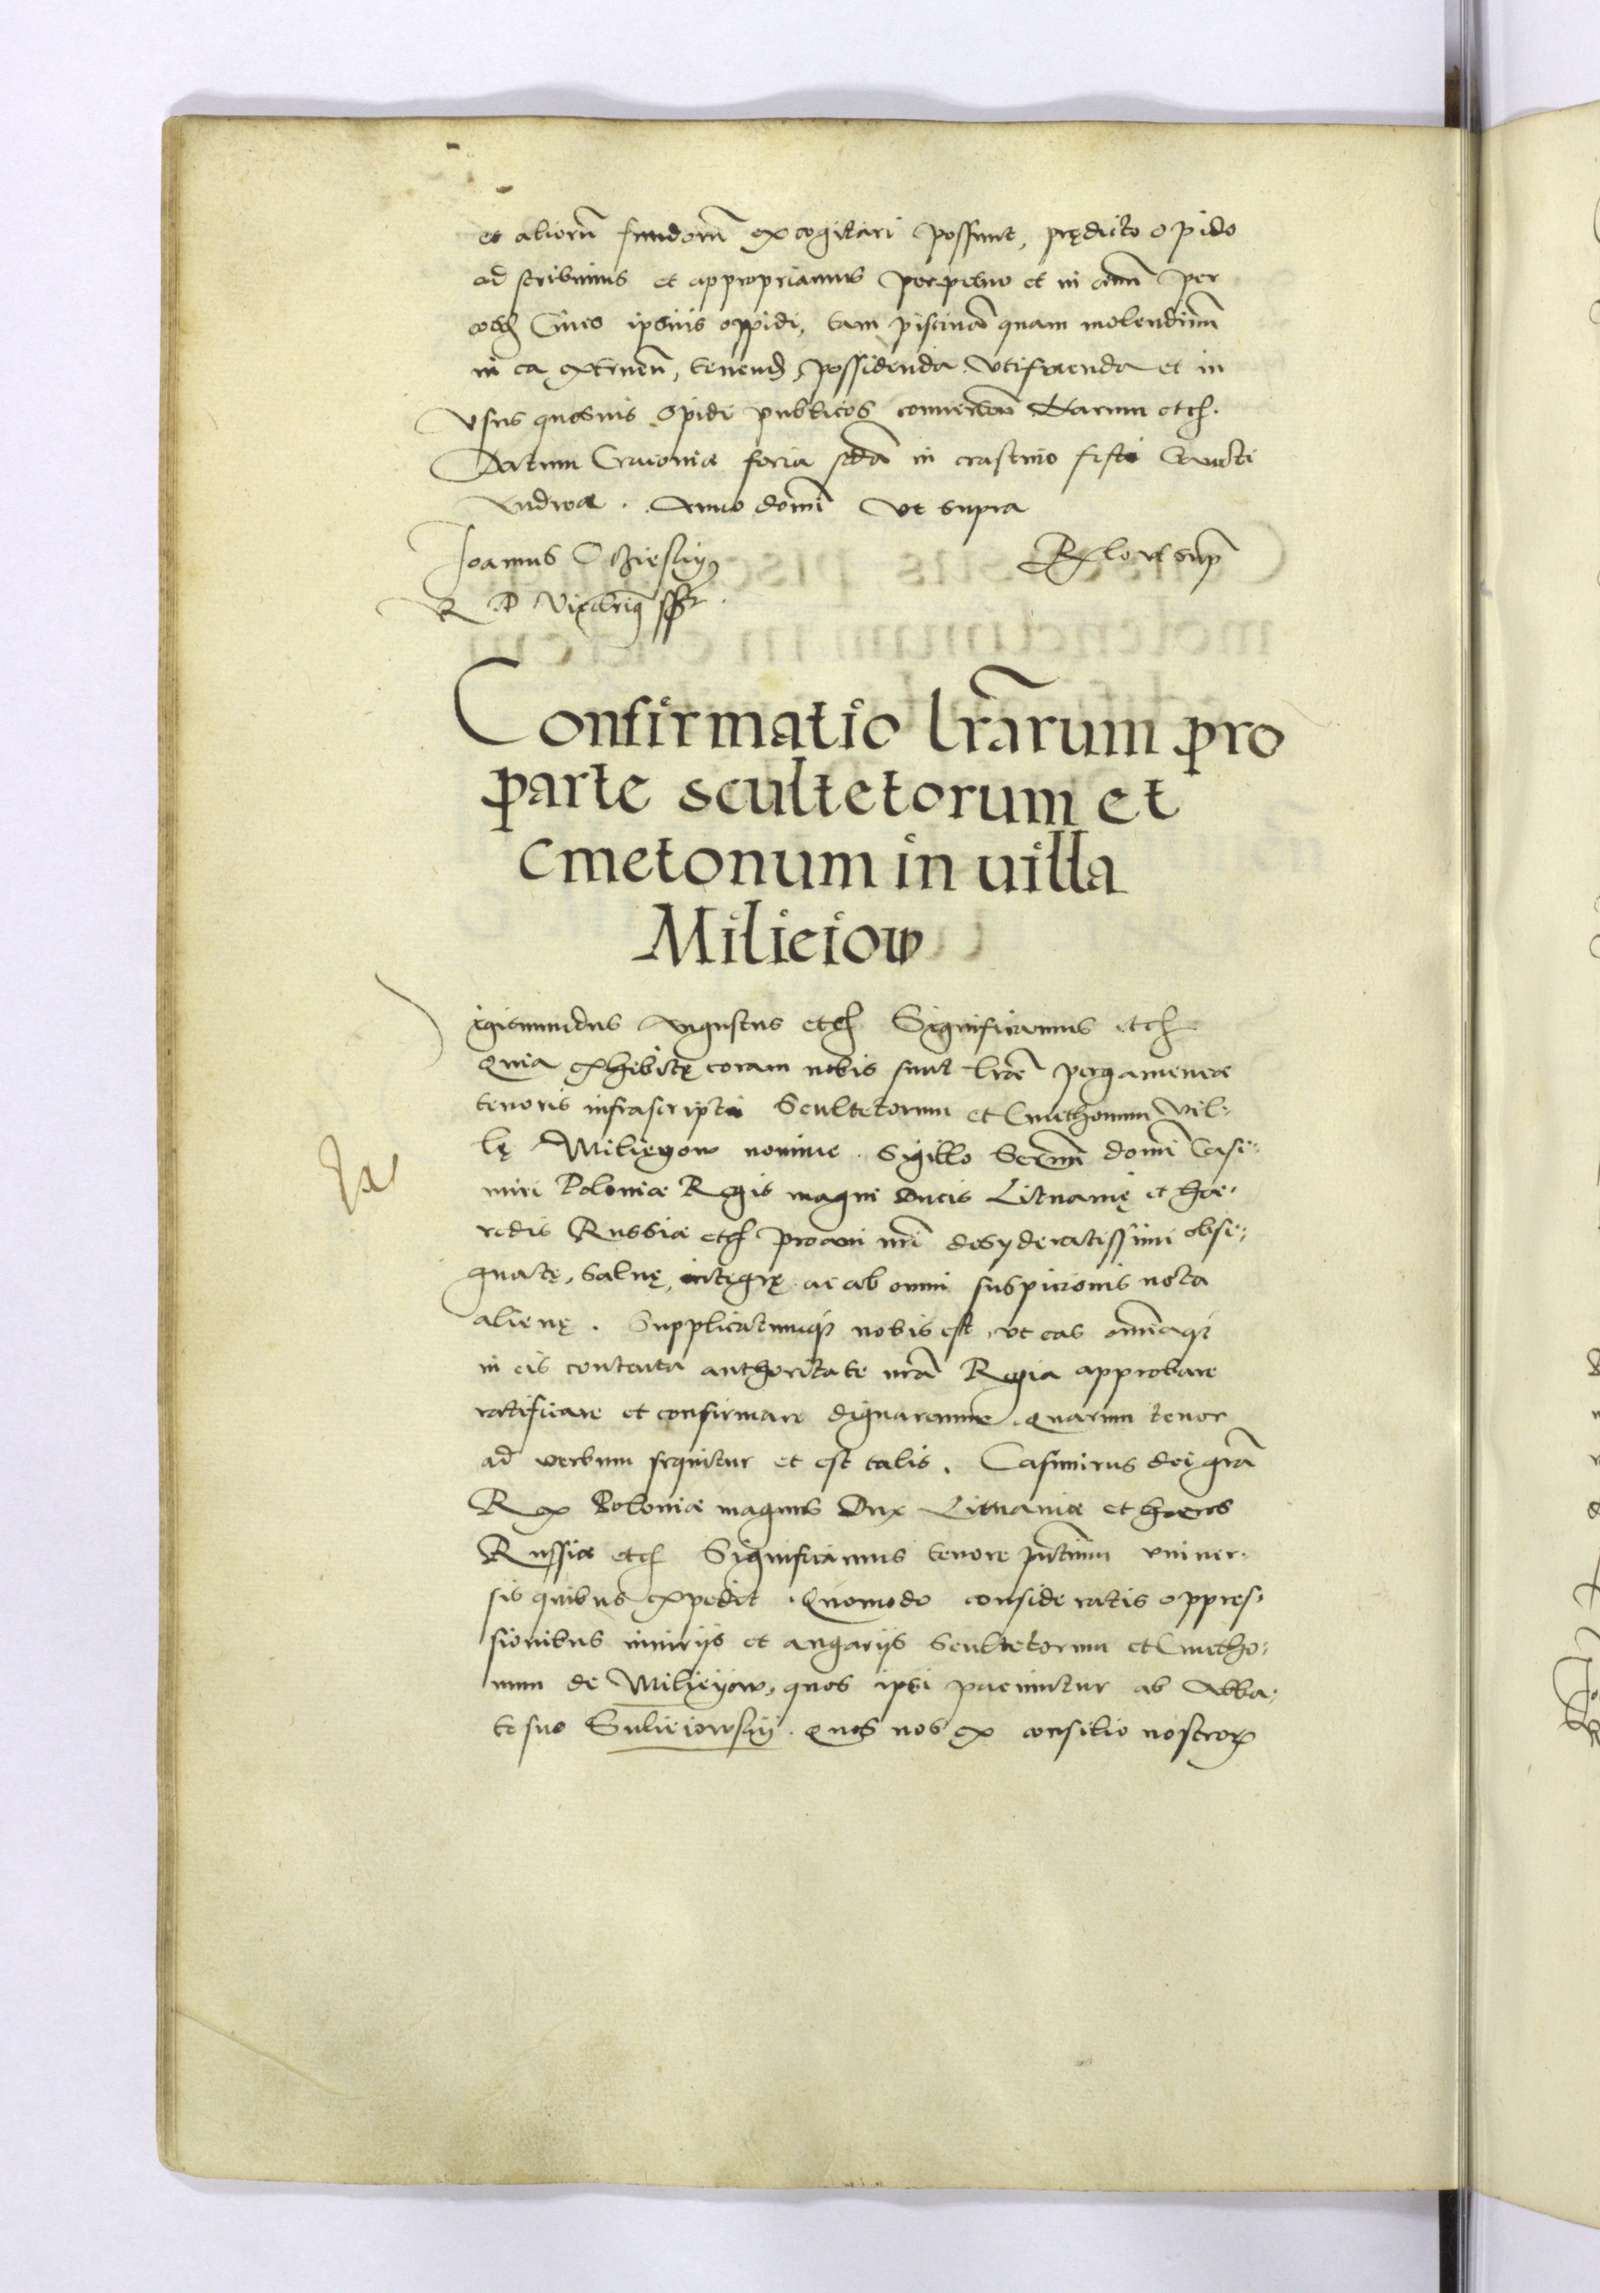 et aliorū fundorū excogitari possunt, prędicto opido
ad scribimus et appropriamus perpetuo et in aeuū per
Ciues ipsius oppidi, tam piscinā quam molendinū
in ea extruen̄, tenend, possidenda vtifruenda et in
vsus quosuis opidi publicos conuerten̄ Harum etc.
Datum Cracouiæ feria scdā in crastino festi Sancti
Andreæ. Anno domī vt supra
Joannus Oczieskij
R P Vicecancriꝰ sst.
Rlo vt sup̄
Confirmatio lr̄arum pro
parte scultetorum et
cmetonum in uilla
Milieiow
igismundus Augustus etc Significamus etc
Quia exhibitę coram nobis sunt lræ pergameneæ
tenoris infrascripti Scultetorum et Cmethonum Vil:
lę Milieyow nomine. Sigillo Serm̄i domī Casi:
miri Poloniæ Regis magni Ducis Lituanię et hæ:
redis Russiæ etc proaui nrī desyderatissimi obsi:
gnatę, saluę, integrę ac ab omni suspicionis nota
alienę. Supplicatumq nobis est, vt eas omīaq
in eis contenta authoritate nrā Regia approbare
ratificare et confirmare dignaremur. Quarum tenor
ad verbum sequitur et est talis. Casimirus dei grā
Rex Poloniæ magnus Dux Lituaniæ et hæres
Russiæ etc Significamus tenore pn̄tium vniuer:
sis quibus expedit. Quomodo consideratis oppres:
sionibus iniurijs et angarijs Scultetorum et Cmetho:
num de Milieyow, quos ipsi paciuntur ab Abba:
te suo Sulieiowskij. Quos nos ex consilio nostrorꝝ